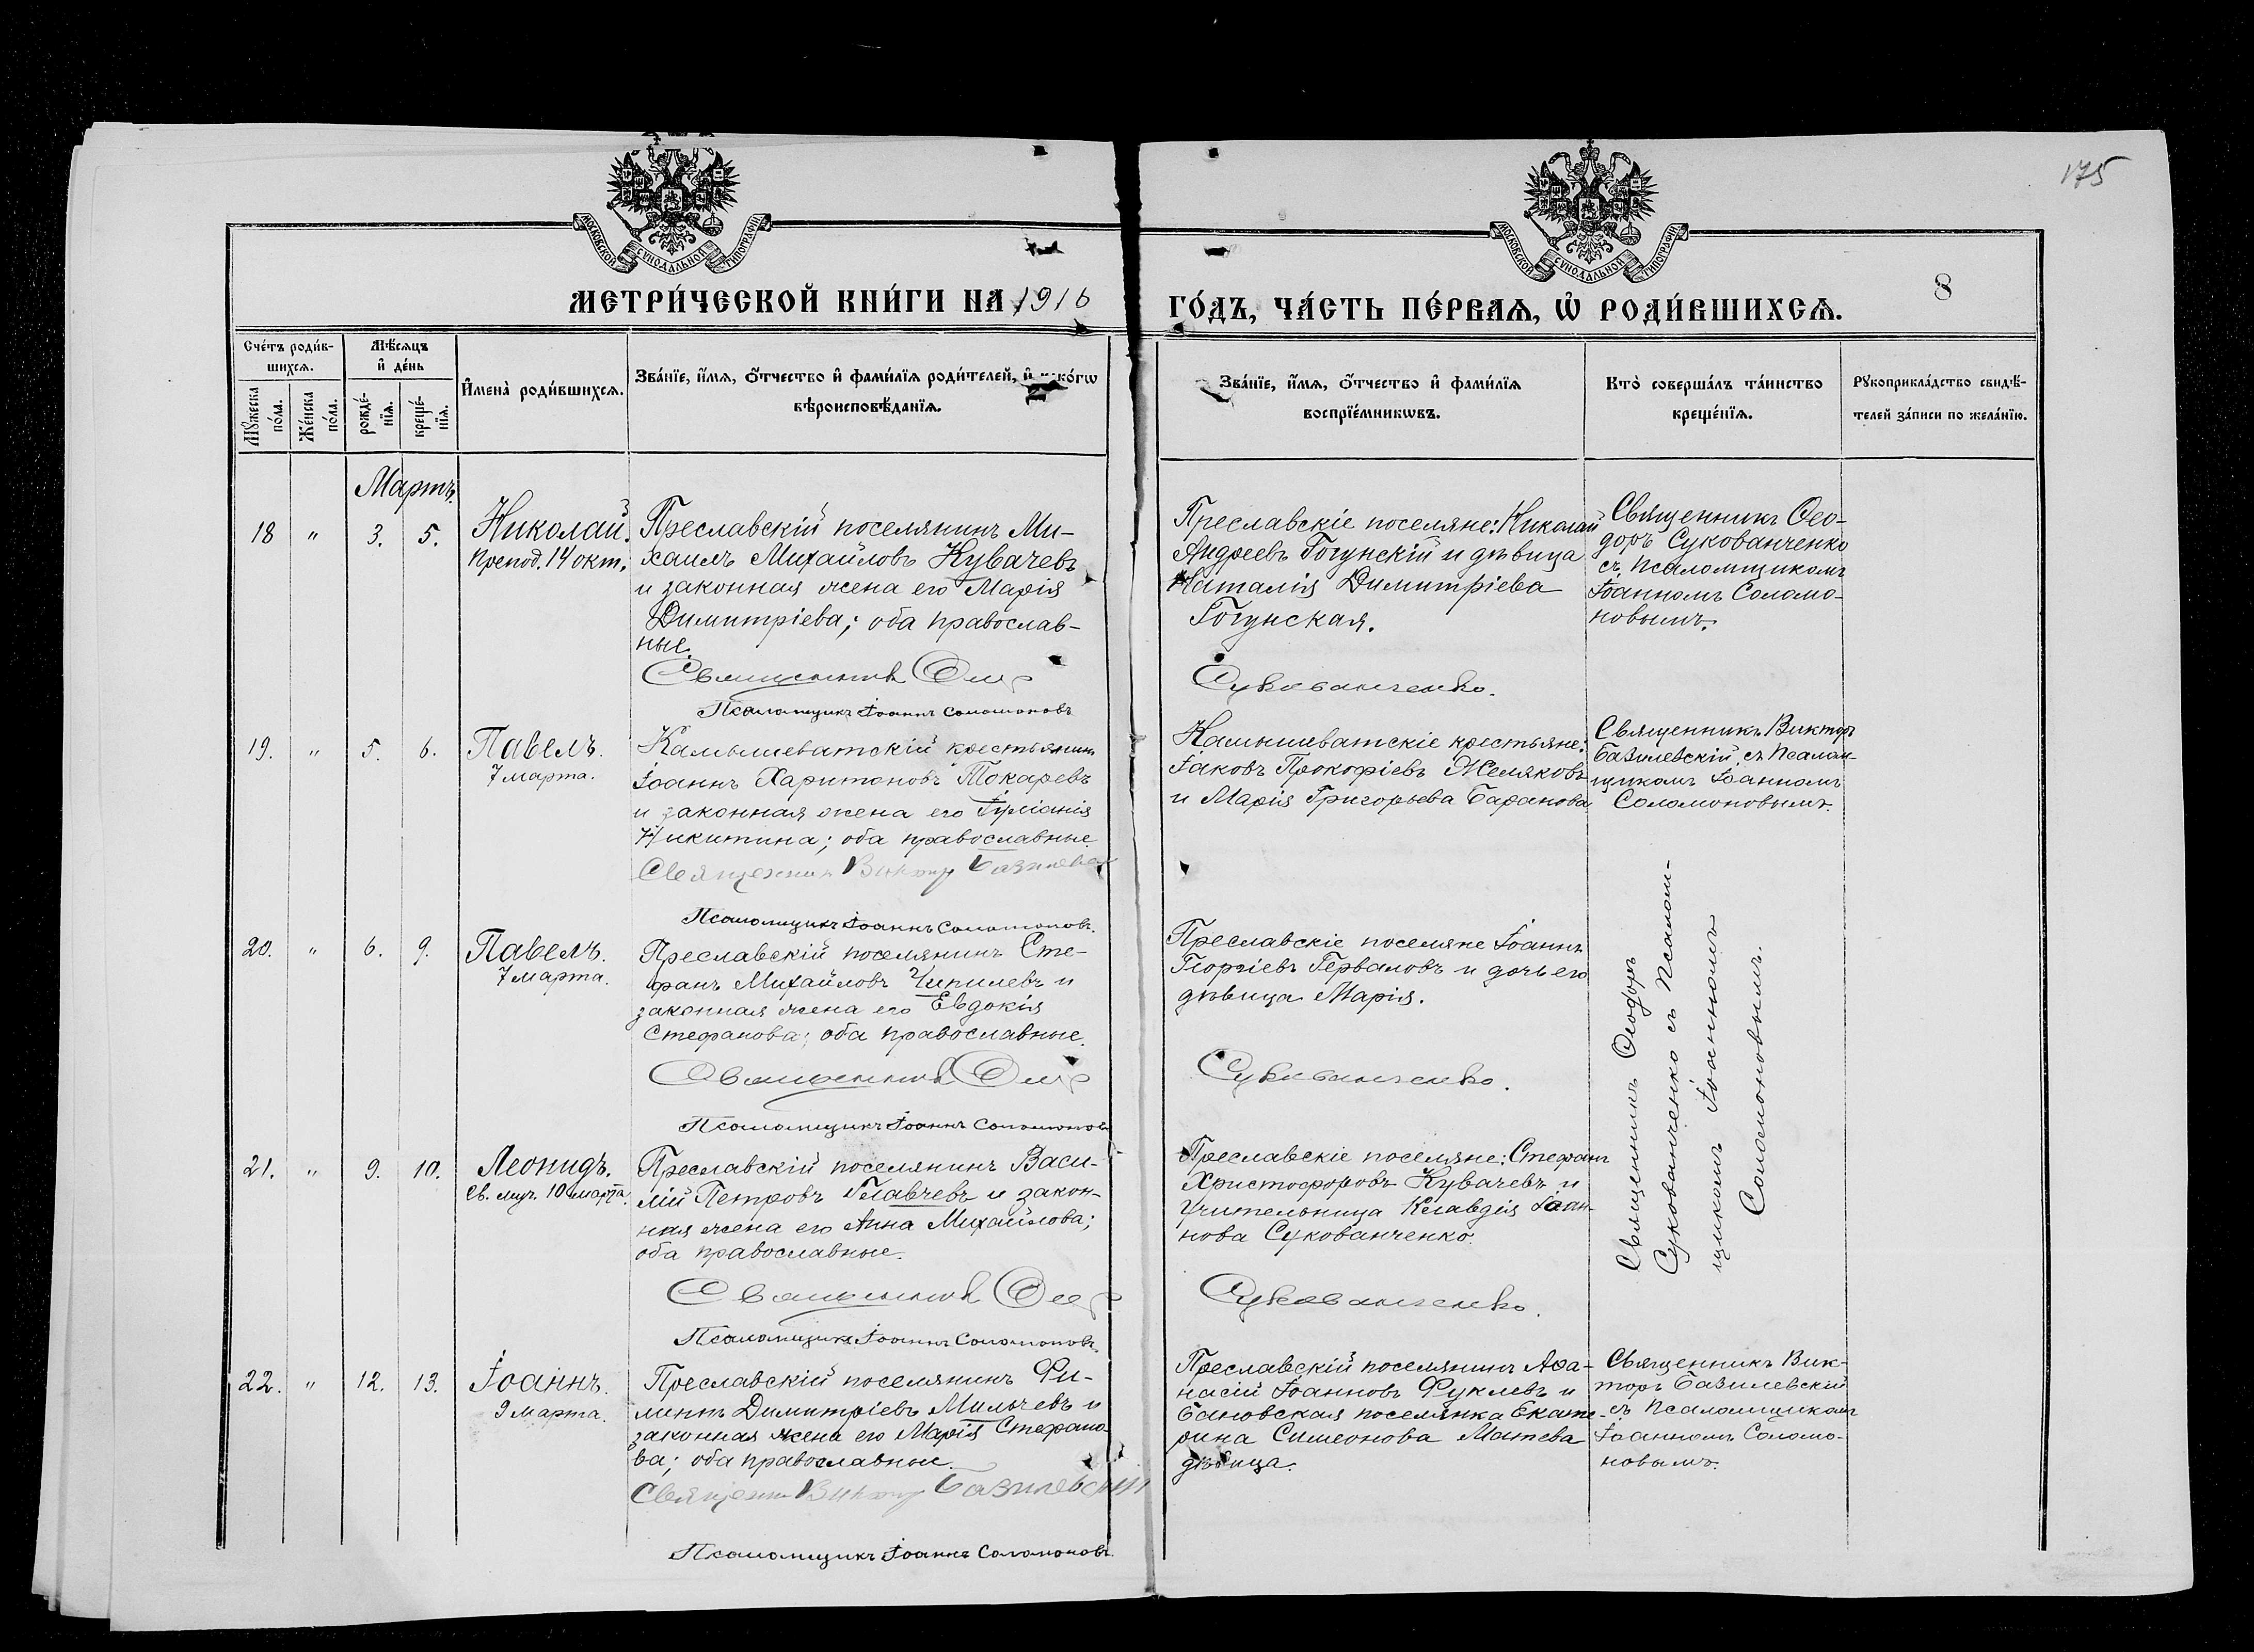 175
МОСКОВСКОЙ СѴНОДАЛЬНОЙ ТИПОГРАФІИ
МОСКОВСКОЙ СѴНОДАЛЬНОЙ ТИПОГРАФІИ
МЕТРИ́ЧЕСКОЙ КНИ́ГИ НА 1916 ГО́ДЪ, ЧА́СТЬ ПЕ́РВАѦ, Ѡ҆ РОДИ́ВШИХСѦ.
8
Сче́тъ роди́в-
шихсѧ.
Мꙋ́жеска
по́ла.
Же́нска
по́ла.
Мѣ́сѧцъ
и҆ де́нь
рожде́-
нїѧ.
креще́-
нїѧ.
И҆мена̀ роди́вшихсѧ.
Зва́нїе, и҆́мѧ, ѻ҆́тчество и҆ фами́лїѧ роди́телей, и҆
вѣроисповѣ́данїѧ.
Зва́нїе, и҆́мѧ, ѻ҆́тчество и҆ фами́лїѧ
воспрїе́мникѡвъ.
Кто̀ соверша́лъ та́инство
креще́нїѧ.
Рꙋкоприкла́дство свидѣ́-
телей за́писи по жела́нїю.
Мартъ.
18 " 3. 5.
Николай.
Препод. 14 окт.
Преславскій поселянинъ Ми-
хаилъ Михайловъ Кувачевъ
и законная жена его Марія
Димитріева; оба православ-
ные.
Священникъ Ѳеодоръ
Псаломщикъ Іоаннъ Соломоновъ
Преславскіе поселяне: Николай
Андреевъ Гогунскій и дѣвица
Наталія Димитріева
Гогунская.
Сукованченко.
Священникъ Ѳео-
доръ Сукованченко
съ псаломщикомъ
Іоанномъ Соломо-
новымъ.
19. " 5. 6.
Павелъ.
7 марта.
Камышеватскій крестьянинъ
Іоаннъ Харитоновъ Токаревъ
и законная жена его
Никитина; оба православные
Священникъ Викторъ Базилевскій
Псаломщикъ Іоаннъ Соломоновъ.
Камышеватскіе крестьяне:
Іаковъ Прокофіевъ Желяковъ
и Марія Григорьева Баранова.
Священникъ Викторъ
Базилевскій съ псалом-
щикомъ Іоанномъ
Соломоновымъ.
20. " 6. 9.
Павелъ.
7 марта.
Преславскій поселянинъ Сте-
фанъ Михайловъ Чипилевъ и
законная жена его Евдокія
Стефанова; оба православные.
Священникъ Ѳеодоръ
Псаломщикъ Іоаннъ Соломоновъ
Преславскіе поселяне Іоаннъ
Георгіевъ Герваловъ и дочь его
дѣвица Марія.
Сукованченко.
Священникъ Ѳеодоръ
Сукованченко съ псалом-
щикомъ Іоанномъ
Соломоновымъ.
21. " 9. 10.
Леонидъ.
Св. муч. 10 марта.
Преславскій поселянинъ Васи-
лій Петровъ Главчевъ и закон-
ная жена его Анна Михайлова;
оба православные.
Священникъ Ѳеодоръ
Псаломщикъ Іоаннъ Соломоновъ.
Преславскіе поселяне: Стефанъ
Христофоровъ Кувачевъ и
учительница Клавдія Іоан-
нова Сукованченко.
Сукованченко.
22. " 12. 13.
Іоаннъ.
9 марта.
Преславскій поселянинъ Фи-
липпъ Димитріевъ Мильчевъ и
законная жена его Марія Стефано-
ва; оба православные.
Священникъ Викторъ Базилевскій
Псаломщикъ Іоаннъ Соломоновъ.
Преславскій поселянинъ Аѳа-
насій Іоанновъ Фуклевъ и
Бановская поселянка Екате-
рина Симеонова Матева
дѣвица.
Священникъ Вик-
торъ Базилевскій
съ псаломщикомъ
Іоанномъ Соломо-
новымъ.